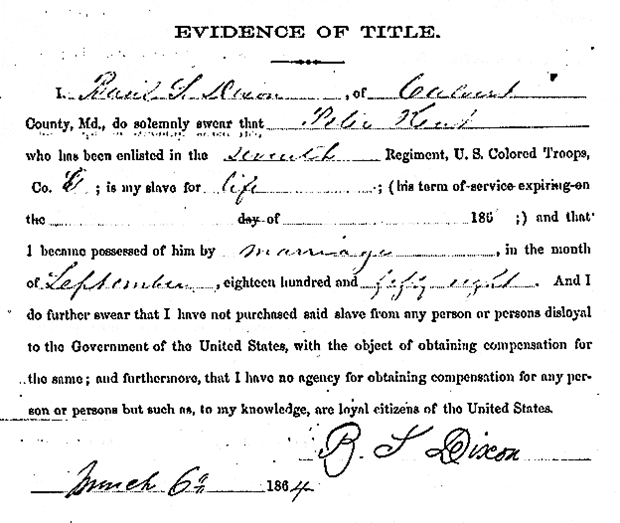 EVIDENCE OF TITLE.
I, Basil S Dixon, of Calvert
County, Md., do solemnly swear that Peter Kent
who has been enlisted in the seventh Regiment, U. S. Colored Troops,
Co. ; is my slave for life ; (his term of service expiring on
the day of 186 ;) and that
I became possessed of him by marriage, in the month
of September, eighteen hundred and fifty eight. And I
do further swear that I have not purchased said slave from any person or persons disloyal
to the Government of the United States, with the object of obtaining compensation for
the same; and furthermore, that I have no agency for obtaining compensation for any per-
son or persons but such as, to my knowledge, are loyal citizens of the United States.
B. S Dixon
March 6th 1864